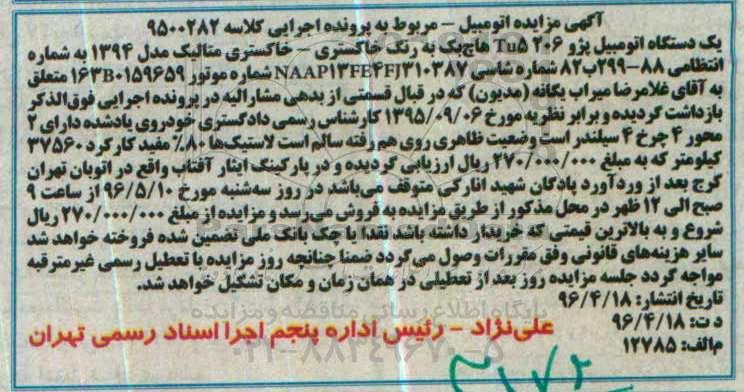 آگهی مزایده اتومبیل - مربوط به پرونده اجرایی کلاسه ۹۵۰۰۲۸۲
یک دستگاه اتومبیل پژو ۲۰۶ Tu5 هاچ‌بک به رنگ خاکستری - خاکستری متالیک مدل ۱۳۹۴ به شماره
انتظامی ۸۸-۲۹۹ب۸۲ شماره شاسی NAAP۱۳FE۴FJ۳۱۰۳۸۷ شماره موتور ۱۶۳B۰۱۵۹۶۵۹ متعلق
به آقای غلامرضا میراب یگانه (مدیون) که در قبال قسمتی از بدهی مشارالیه در پرونده اجرایی فوق‌الذکر
بازداشت گردیده و برابر نظریه مورخ ۱۳۹۵/۰۹/۰۶ کارشناس رسمی دادگستری خودروی یادشده دارای ۲
محور ۴ چرخ ۴ سیلندر است وضعیت ظاهری روی هم رفته سالم است لاستیک‌ها ۸۰٪ مفید کارکرد ۳۷۵۶۰
کیلومتر که به مبلغ ۲۷۰/۰۰۰/۰۰۰ ریال ارزیابی گردیده و در پارکینگ ایثار آفتاب واقع در اتوبان تهران
کرج بعد از وردآورد پادگان شهید انارکی متوقف می‌باشد در روز سه‌شنبه مورخ ۹۶/۵/۱۰ از ساعت ۹
صبح الی ۱۲ ظهر در محل مذکور از طریق مزایده به فروش می‌رسد و مزایده از مبلغ ۲۷۰/۰۰۰/۰۰۰ ریال
شروع و به بالاترین قیمتی که خریدار داشته باشد نقدا یا چک بانک ملی تضمین شده فروخته خواهد شد
سایر هزینه‌های قانونی وفق مقررات وصول می‌گردد ضمنا چنانچه روز مزایده با تعطیل رسمی غیرمترقبه
مواجه گردد جلسه مزایده روز بعد از تعطیلی در همان زمان و مکان تشکیل خواهد شد.
تاریخ انتشار: ۹۶/۴/۱۸
د ت: ۹۶/۴/۱۸
م‌الف: ۱۲۷۸۵
علی‌نژاد - رئیس اداره پنجم اجرا اسناد رسمی تهران
پایگاه اطلاع رسانی مناقصه و مزایده
۰۲۱-۸۸۳۴۹۶۷۰-۵